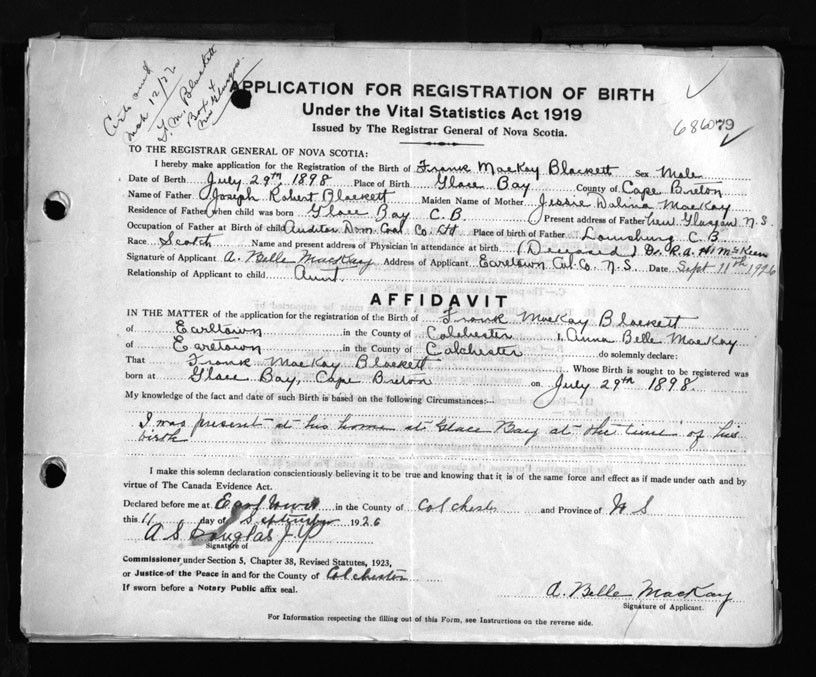 Mch 12/27
F. M. Blackett
Box 4
New Glasgow
APPLICATION FOR REGISTRATION OF BIRTH
Under the Vital Statistics Act 1919
Issued by The Registrar General of Nova Scotia.
TO THE REGISTRAR GENERAL OF NOVA SCOTIA:
I hereby make application for the Registration of the Birth of Frank MacKay Blackett Sex Male
Date of Berth July 29th, 1898 Place of Birth Glace Bay County of Cape Breton
Name of Father Joseph Robert Blackett Maiden Name of Mother Jessie Dalina MacKay
Residence of Father when child was born Glace Bay C. B. Present address of Father New Glasgow N. S.
Occupation of Father at Birth of child Auditor Dom. Coal Co. Ltd Place of birth of Father Louisburg C. B.
Race Scotch Name and present address of Physician in attendance at birth (Deceased) Dr. R. A. H. McKeen
Signature of Applicant A. Belle MacKay Address of Applicant Earltown Col. Co. N. S. Date Sept 11th 1926
Relationship of Applicant to child Aunt.
AFFIDAVIT
IN THE MATTER of the application for the registration of the Birth of Frank MacKay Blackett
of Earltown in the County of Colchester I, Anna Belle MacKay
of Earltown in the County of Colchester do solemnly declare:
That Frank MacKay Blackett Whose Birth is sought to be registered was
born at Glace Bay, Cape Breton on July 29th 1898.
My knowledge of the fact and date of such Birth is based on the following Circumstances:—
I was present at his home at Glace Bay at the time of his
birth
I make this solemn declaration conscientiously believing it to be true and knowing that it is of the same force and effect as if made under oath and by
virtue of The Canada Evidence Act.
Declared before me at Earltown in the County of Colchester and Province of N S
this 11 day of September 1926
A S Douglas J. P
Signature of
Commissioner under Section 5, Chapter 38, Revised Statutes, 1923,
or Justice of the Peace in and for the County of Colchester
If sworn before a Notary Public affix seal.
A. Belle MacKay
Signature of Applicant.
For Information respecting the filling out of this Form, see Instructions on the reverse side.